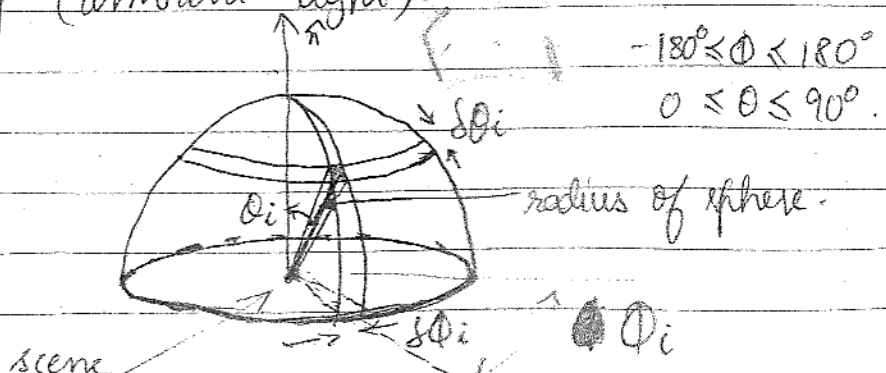 (ambient light)
n̂
-180° ≤ Φ ≤ 180°
0 ≤ θ ≤ 90°.
δθi
θi
radius of sphere.
δΦi
Φi
scene